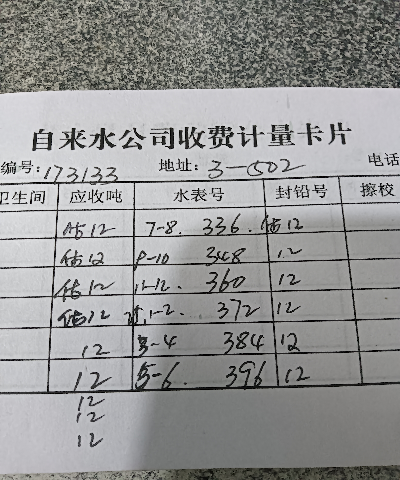 自来水公司收费计量卡片
编号: 173133 地址: 3-502 电话
卫生间 应收吨 水表号 封铅号 擦校
估12 7-8. 336. 估12
估12 9-10 348 12
估12 11-12. 360 12
估12 1-2. 372 12
12 3-4 384 12
12 5-6. 396 12
12
12
12